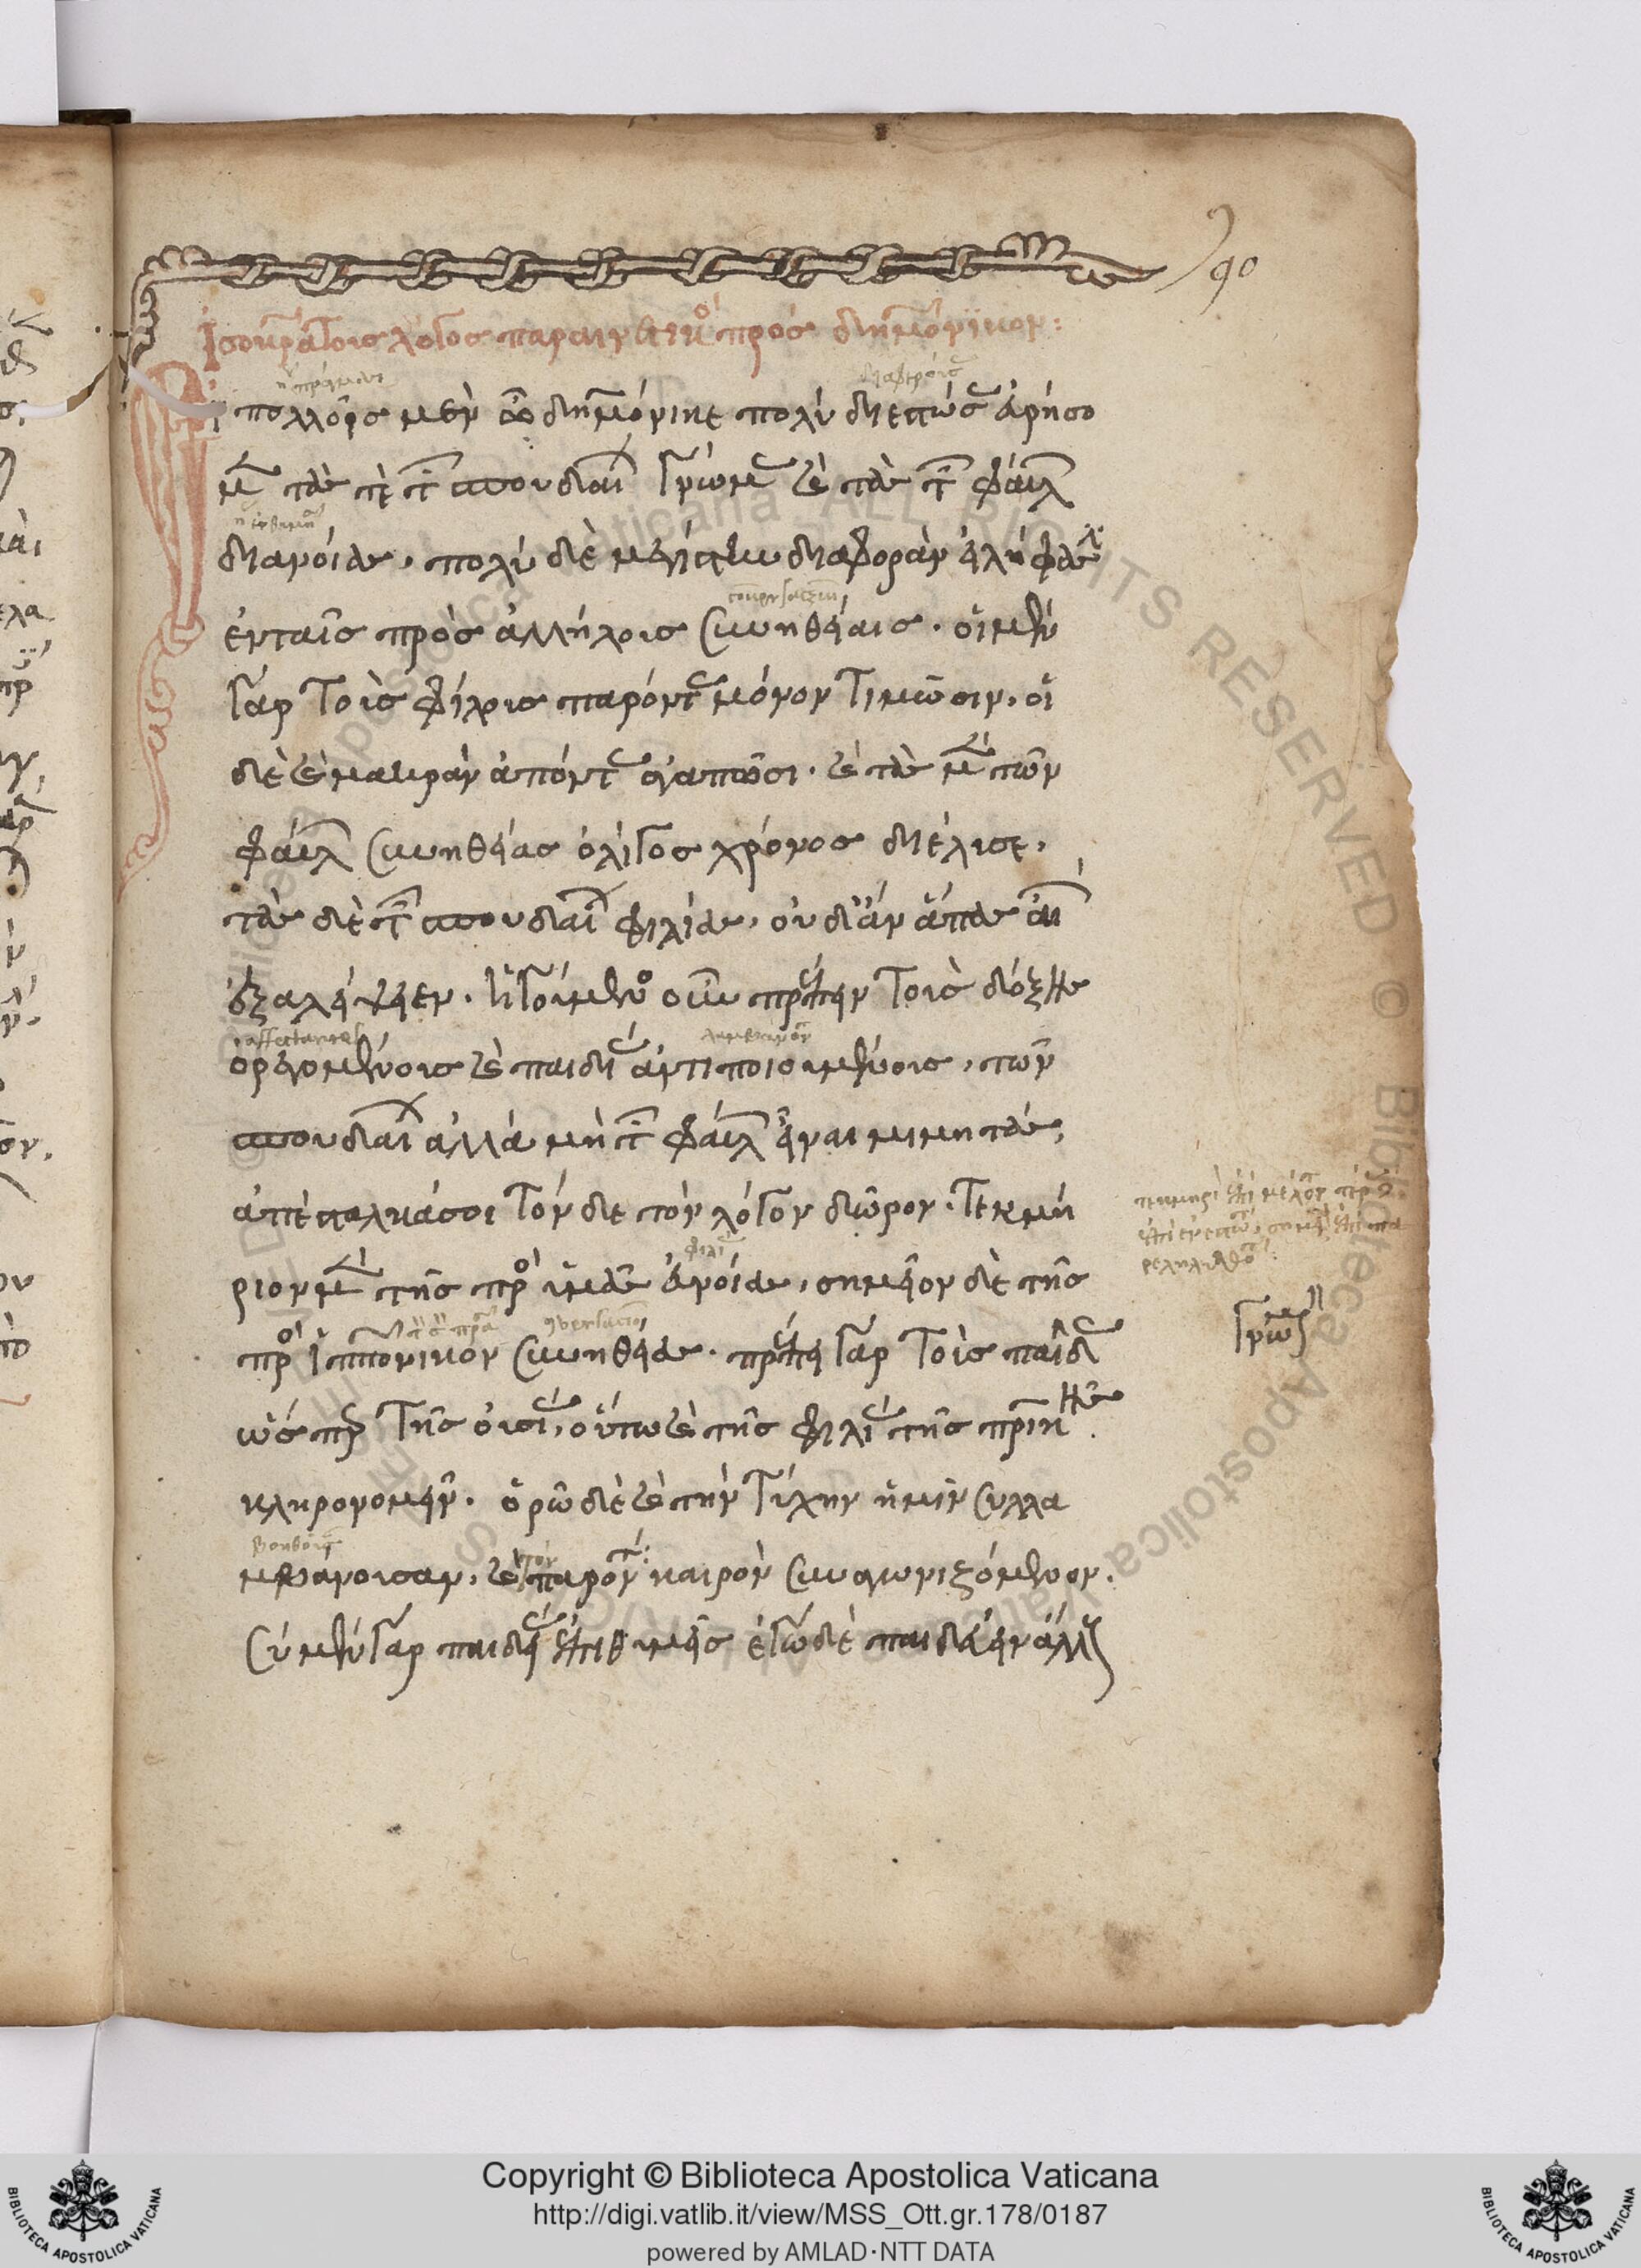 90
Ἰσοκράτους λόγος παραινετικὸς πρὸς δημόνικον:
ἐν πολλοῖς μὲν ὦ δημόνικε πολὺ διεστώσας εὑρήσο
μεν τάς τε τῶν σπουδαίων γνώμας καὶ τὰς τῶν φαύλων
διανοίας, πολὺ δὲ μεγίστην διαφορὰν εἰλήφασιν
ἐν ταῖς πρὸς ἀλλήλους συνηθείαις. οἱ μὲν
γὰρ τοὺς φίλους παρόντας μόνον τιμῶσιν, οἱ
δὲ καὶ μακρὰν ἀπόντας ἀγαπῶσι. καὶ τὰς μὲν τῶν
φαύλων συνηθείας ὀλίγος χρόνος διέλυσε,
τὰς δὲ τῶν σπουδαίων φιλίας, οὐδ' ἂν ἅπας αἰὼν
ἐξαλείψειεν. ἡγούμενος οὖν πρέπειν τοὺς δόξης
affectantes
ὀρεγομένους καὶ παιδείας ἀντιποιουμένους, τῶν
σπουδαίων ἀλλὰ μὴ τῶν φαύλων εἶναι μιμητάς,
ἀπέσταλκά σοι τόνδε τὸν λόγον δῶρον. τεκμή
ριον μὲν τῆς πρὸς ὑμᾶς εὐνοίας, σημεῖον δὲ τῆς
πρὸς Ἱππόνικον συνηθείας. πρέπει γὰρ τοὺς παῖδας
ὥσπερ τῆς οὐσίας, οὕτω καὶ τῆς φιλίας τῆς πατρικῆς
κληρονομεῖν. ὁρῶ δὲ καὶ τὴν τύχην ἡμῖν συλλα
μβάνουσαν, καὶ τὸν παρόντα καιρὸν συναγωνιζόμενον.
σὺ μὲν γὰρ παιδείας ἐπιθυμεῖς ἐγὼ δὲ παιδεύειν ἄλλους
Copyright © Biblioteca Apostolica Vaticana
http://digi.vatlib.it/view/MSS_Ott.gr.178/0187
powered by AMLAD·NTT DATA
BIBLIOTECA APOSTOLICA VATICANA
BIBLIOTECA APOSTOLICA VATICANA